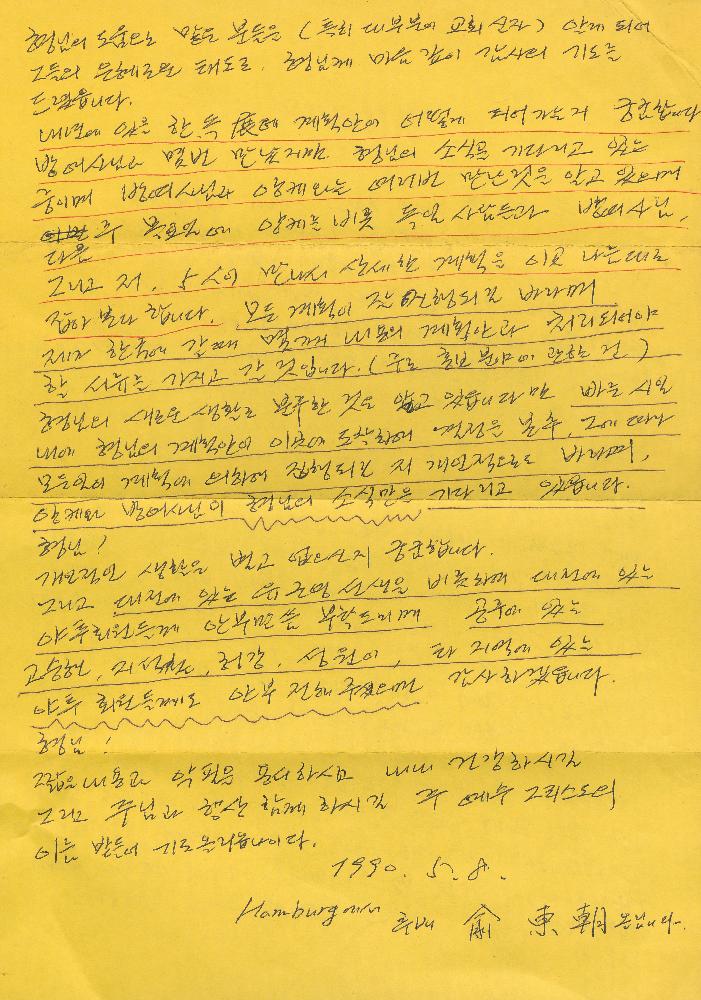 형님의 도움으로 많은 분들은 (특히 대부분이 교회 신자) 알게 되어
그들의 은혜로운 태도로. 형님께 마음 깊이 감사의 기도를
드렸읍니다.
내년에 있을 한.독 展에 계획안이 어떻게 되어가는지 궁금합니다
방여사님과 몇번 만났지만 형님의 소식을 기다리고 있는
중이며 방여사님과 안케와는 여러번 만난것을 알고 있으며
주 목요일에 안케를 비롯 독일 사람들과 방여사님,
다음
그리고 저, 5人이 만나서 상세한 계획을 이곳 나름대로
잡아 본다 합니다. 모든 계획이 잘 진행되길 바라며
제가 한국에 갈 때 몇가지 내용의 계획안과 처리되어야
할 서류를 가지고 갈 것입니다. (주로 홍보 분야에 관한 건)
형님의 새로운 생활로 분주한 것으로 알고 있읍니다만 빠른 시일
내에 형님의 계획안이 이곳에 도착하여 결정을 본 후, 그에 따라
모든일이 계획에 의하여 집행되길 저 개인적으로도 바라며,
안케와 방여사님이 형님의 소식만을 기다리고 있읍니다.
형님!
개인적인 생활은 별고 없으신지 궁금합니다.
그리고 대전에 있는 유근영 선생을 비롯하여 대전에 있는
야투회원들께 안부말씀 부탁드리며 공주에 있는
고승현, 지석철, 허강, 성원이, 타 지역에 있는
야투 회원들께도 안부 전해 주셨으면 감사하겠읍니다.
형님!
짧은 내용과 악필을 용서하시고 내내 건강하시길
그리고 주님과 항상 함께 하시길 주 예수 그리스도의
이름 받들어 기도 올리옵나이다.
1990. 5. 8.
Hamburg에서 후배 俞 東 朝 올립니다.